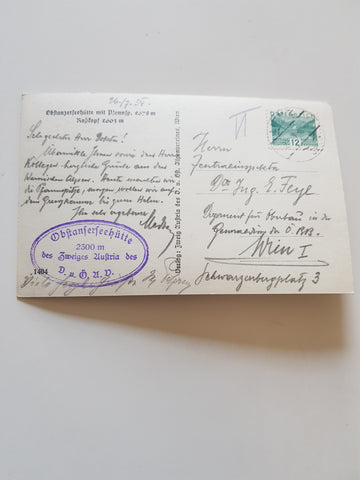 26/7. 36.
Obstanzerseehütte mit Pfannsp. 2678 m
Roßkopf 2603 m
Sehr geehrter Herr Doktor!
Übermittle Ihnen sowie den Herrn
Kollegen herzliche Grüße aus den
Karnischen Alpen. Heute machten wir
die Pfannspitze, morgen wollen wir auf
den Grenzkamm bis zum Helm.
Ihr sehr ergebener
Obstanserseehütte
2500 m
des Zweiges Austria des
D. u. Ö. A. V.
1404
Viele
Verlag: Zweig Austria des D. u. Öst. Alpenvereines, Wien
12
Herrn
Zentralinspektor
Dr. Ing. E. Feyl
für Neubau in der
Generaldion der Ö. B. B.
Wien I
Schwarzenbergplatz 3